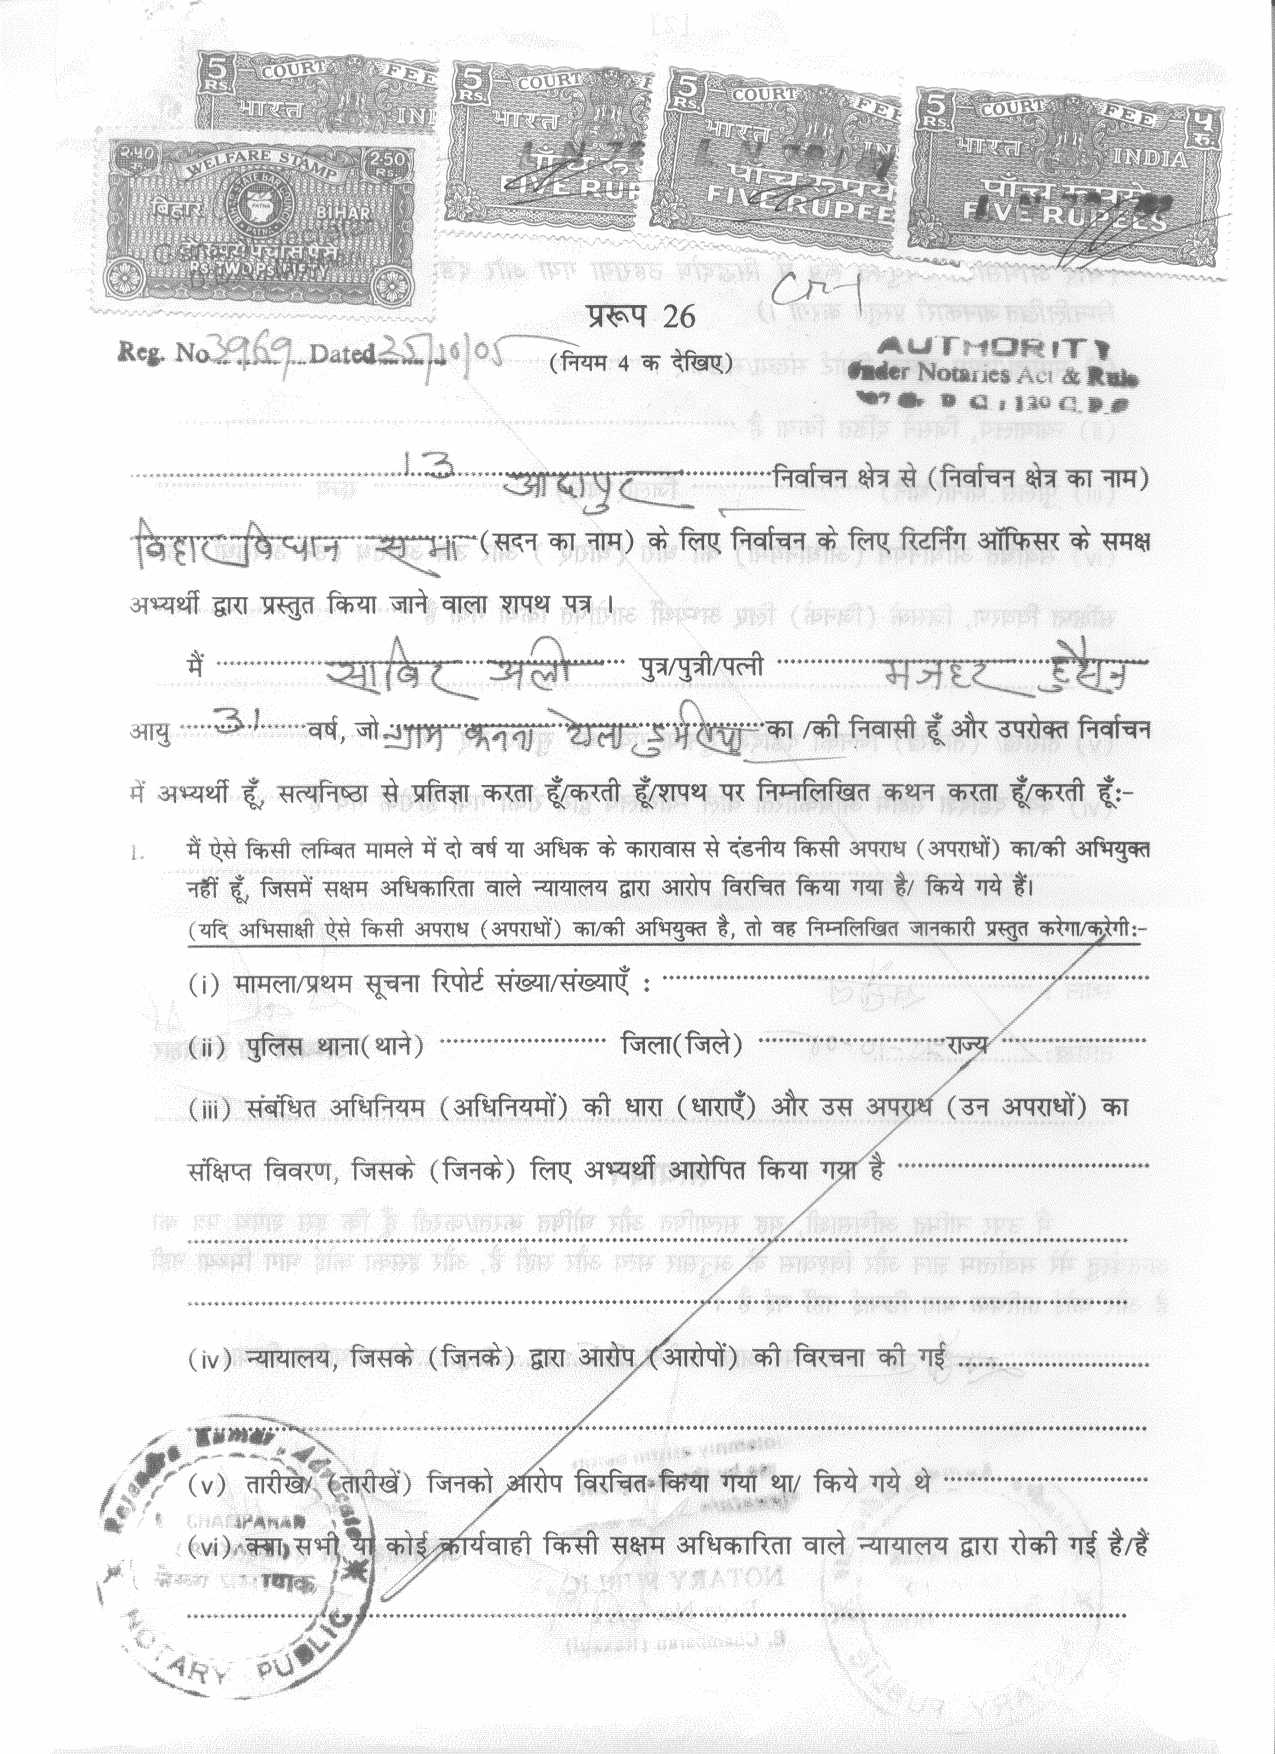 5 Rs. COURT FEE भारत INDIA
5 Rs. COURT भारत पाँच रु FIVE RUPE
5 Rs. COURT FEE भारत IN पाँच रूपये FIVE RUPEE
5 Rs. COURT FEE ५ रु भारत INDIA पाँच रूपये FIVE RUPEES
WELFARE STAMP 2.50 Rs.
बिहार BIHAR
PATNA
दो रूपये पचास पैसे
प्ररूप 26
Reg. No 3969 Dated 25/10/05
(नियम 4 क देखिए)
AUTHORITY
Under Notaries Act & Rule
13 आदापुर निर्वाचन क्षेत्र से (निर्वाचन क्षेत्र का नाम)
बिहार विधान सभा (सदन का नाम) के लिए निर्वाचन के लिए रिटर्निंग ऑफिसर के समक्ष
अभ्यर्थी द्वारा प्रस्तुत किया जाने वाला शपथ पत्र ।
मैं साबिर अली पुत्र/पुत्री/पत्नी मजहर हुसैन
आयु 31 वर्ष, जो ग्राम कनना टोला डुमरिया का /की निवासी हूँ और उपरोक्त निर्वाचन
में अभ्यर्थी हूँ, सत्यनिष्ठा से प्रतिज्ञा करता हूँ/करती हूँ/शपथ पर निम्नलिखित कथन करता हूँ/करती हूँ:-
1. मैं ऐसे किसी लम्बित मामले में दो वर्ष या अधिक के कारावास से दंडनीय किसी अपराध (अपराधों) का/की अभियुक्त
नहीं हूँ, जिसमें सक्षम अधिकारिता वाले न्यायालय द्वारा आरोप विरचित किया गया है/ किये गये हैं।
(यदि अभिसाक्षी ऐसे किसी अपराध (अपराधों) का/की अभियुक्त है, तो वह निम्नलिखित जानकारी प्रस्तुत करेगा/करेगी:-
(i) मामला/प्रथम सूचना रिपोर्ट संख्या/संख्याएँ :
(ii) पुलिस थाना(थाने) जिला(जिले) राज्य
(iii) संबंधित अधिनियम (अधिनियमों) की धारा (धाराएँ) और उस अपराध (उन अपराधों) का
संक्षिप्त विवरण, जिसके (जिनके) लिए अभ्यर्थी आरोपित किया गया है
(iv) न्यायालय, जिसके (जिनके) द्वारा आरोप (आरोपों) की विरचना की गई
(v) तारीख/ (तारीखें) जिनको आरोप विरचित किया गया था/ किये गये थे
(vi) क्या सभी या कोई कार्यवाही किसी सक्षम अधिकारिता वाले न्यायालय द्वारा रोकी गई है/हैं
Rajendra Kumar, Advocate
NOTARY PUBLIC